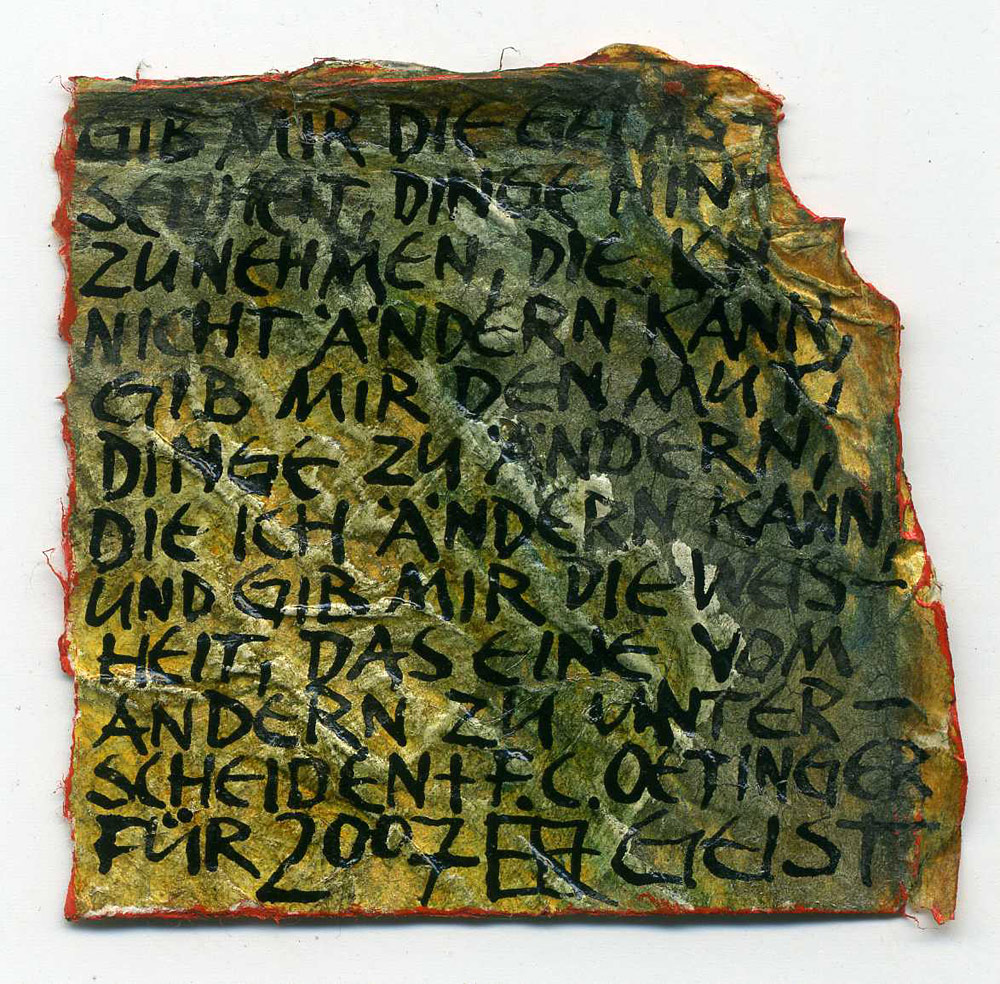 GIB MIR DIE GELAS-
SENHEIT, DINGE HIN
ZUNEHMEN, DIE ICH
NICHT ÄNDERN KANN,
GIB MIR DEN MUT,
DINGE ZU ÄNDERN,
DIE ICH ÄNDERN KANN,
UND GIB MIR DIE WEIS-
HEIT, DAS EINE VOM
ANDERN ZU UNTER-
SCHEIDEN + F. C. OETINGER
FÜR 2007 GEIST